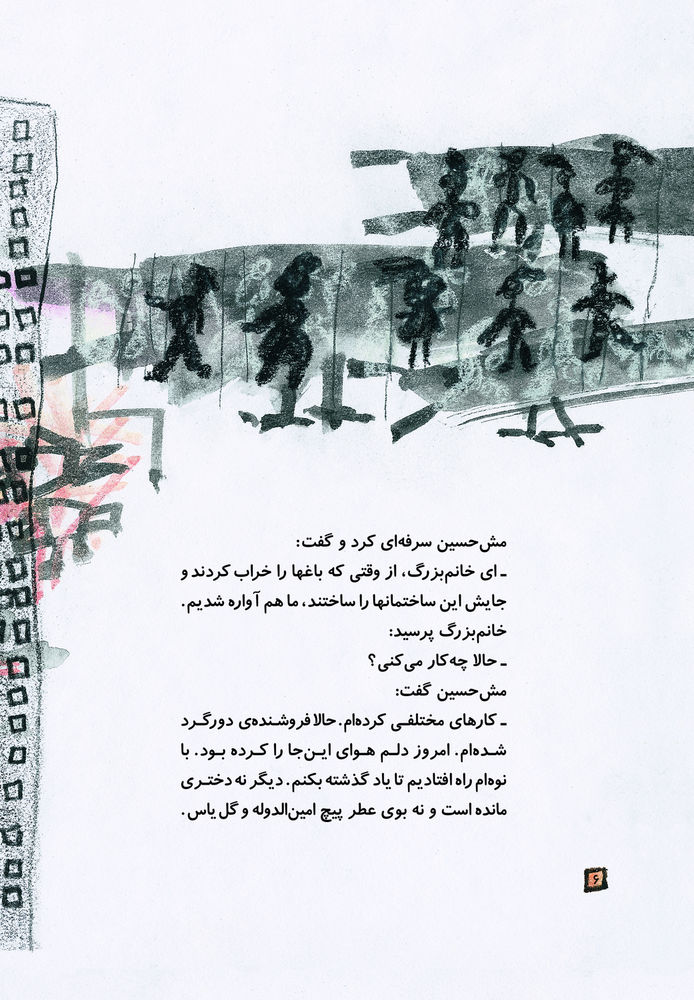 مش‌حسین سرفه‌ای کرد و گفت:
ـ ای خانم‌بزرگ، از وقتی که باغها را خراب کردند و
جایش این ساختمانها را ساختند، ما هم آواره شدیم.
خانم‌بزرگ پرسید:
ـ حالا چه‌کار می‌کنی؟
مش‌حسین گفت:
ـ کارهای مختلفی کرده‌ام. حالا فروشنده‌ی دورگرد
شده‌ام. امروز دلم هوای این‌جا را کرده بود. با
نوه‌ام راه افتادیم تا یاد گذشته بکنم. دیگر نه دختری
مانده است و نه بوی عطر پیچ امین‌الدوله و گل یاس.
۶